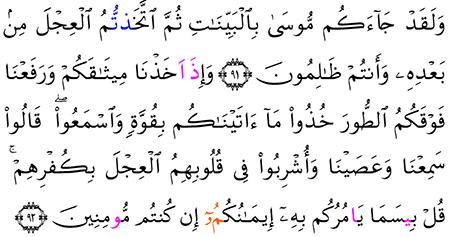 وَلَقَدْ جَآءَكُم مُّوسَىٰ بِالْبَيِّنَاتِ ثُمَّ اَتَّخَذتُّمُ اُلْعِجْلَ مِنۢ
بَعْدِهِۦ وَأَنتُمْ ظَـٰلِمُونَ ۝٩١ وَإِذَ اَخَذْنَا مِيثَـٰقَكُمْ وَرَفَعْنَا
فَوْقَكُمُ اُلطُّورَ خُذُواْ مَآ ءَاتَيْنَـٰكُم بِقُوَّةٍ وَاَسْمَعُواْۖ قَالُواْ
سَمِعْنَا وَعَصَيْنَا وَأُشْرِبُواْ فِي قُلُوبِهِمُ اُلْعِجْلَ بِكُفْرِهِمْۚ
قُلْ بِيسَمَا يَامُرُكُم بِهِۦٓ إِيمَـٰنُكُمُۥٓ إِن كُنتُم مُّومِنِينَ ۝٩٢